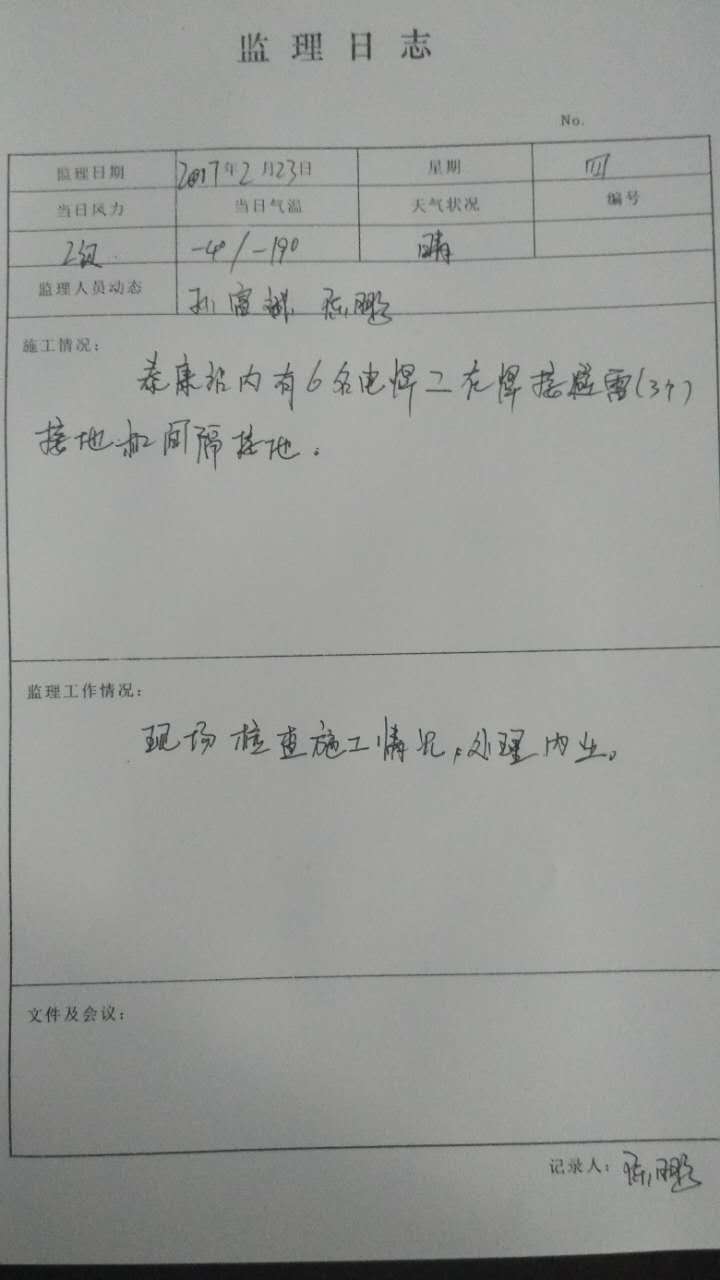 监理日志
No.
监理日期 2017年2月23日 星期 四
当日风力 当日气温 天气状况 编号
2级 -4°/-19° 晴
监理人员动态 孙富
施工情况:
泰康站内有6名电焊工在焊接避雷(3个)
接地和间隔接地。
监理工作情况:
现场检查施工情况,处理内业。
文件及会议:
记录人: